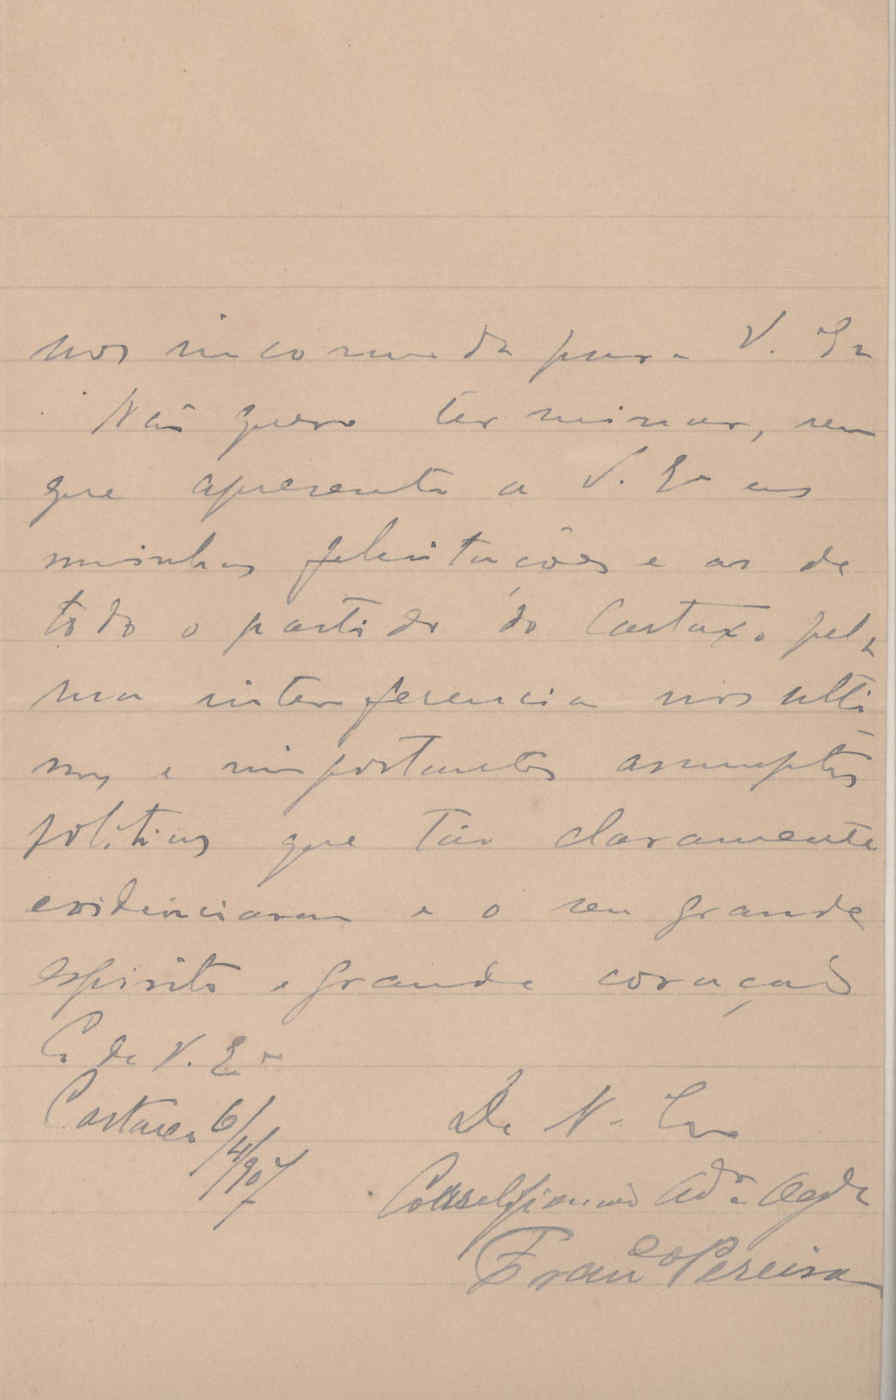 nos incommoda para V. Ex
Não quero terminar, sem
que apresente a V. Ex as
minhas felicitações e as de
todo o partido do Cartaxo pela
sua interferencia nos ulti
mos e importantes assumptos
politicos que tão claramente
evidenciaram o seu grande
espirito e grande coração
C. de V. Ex
Cartaxo 6/4/907
De V. Ex
Correligionario Ad
Franco Pereira